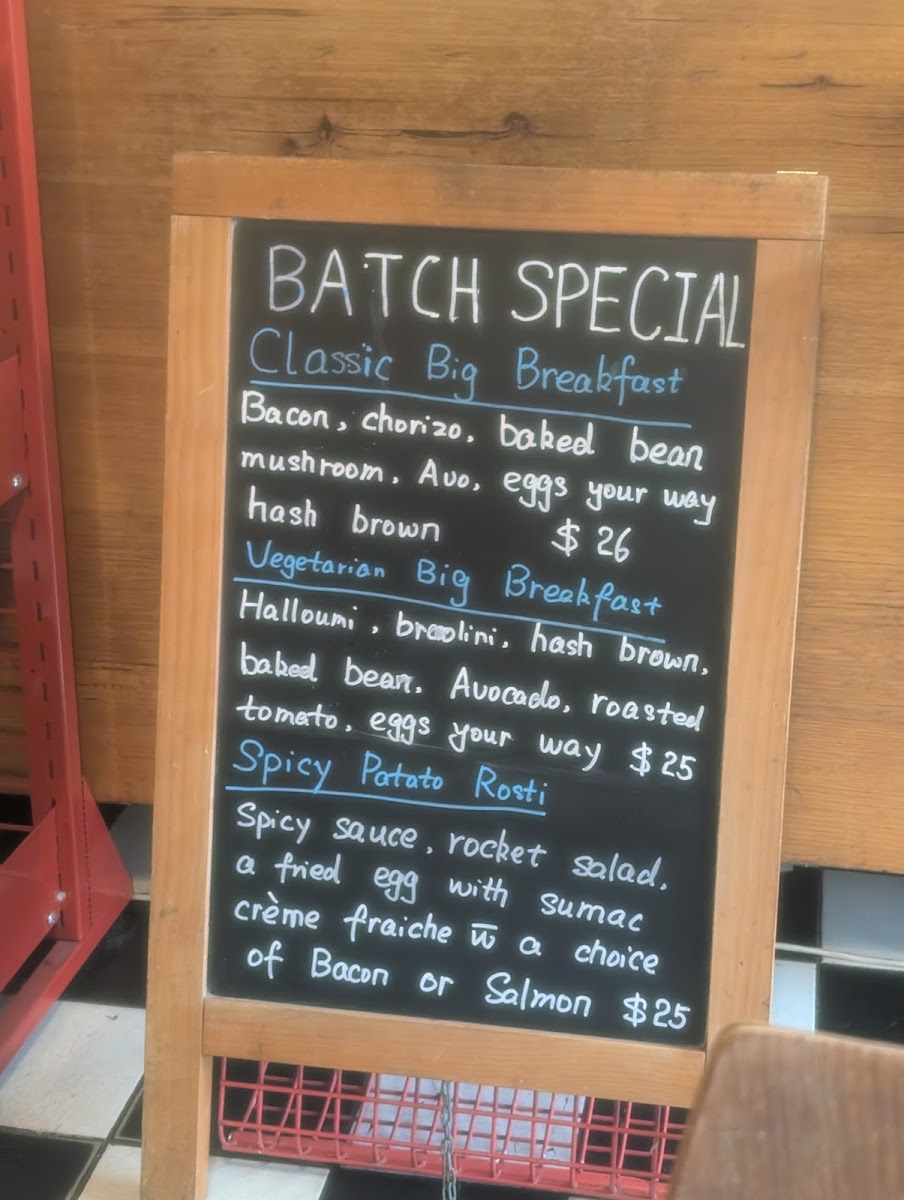 BATCH SPECIAL
Classic Big Breakfast
Bacon, chorizo, baked bean
mushroom, Avo, eggs your way
hash brown $26
Vegetarian Big Breakfast
Halloumi, broolini, hash brown,
baked bean, Avocado, roasted
tomato, eggs your way $25
Spicy Patato Rosti
Spicy sauce, rocket salad,
a fried egg with sumac
crème fraiche w̅ a choice
of Bacon or Salmon $25